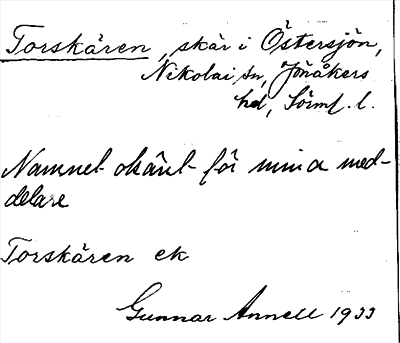 Torskären, skär i Östersjön,
Nikolai sn, Jönåkers
hd, Sörml. l.
Namnet okänt för mina med-
delare
Torskären ek
Gunnar Annell 1933